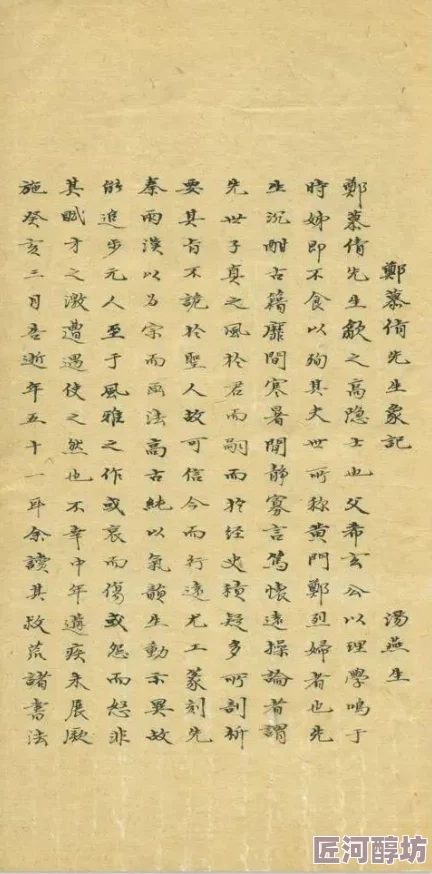 鄭慕倩先生象記 湯燕生
鄭慕倩先生歙之高隱士也父希玄公以理學鳴于
時姊即不食以殉其夫世所称黄門鄭烈婦者也先
生沉酣古籍靡間寒暑閒静寡言篤懷遠操論者謂
先世子真之風於君而嗣而於经史積疑多所剖析
要其旨不詭於聖人故可信今而行遠尤工篆刻先
秦兩漢以为宗而画法高古純以氣韻生動不異故
能追步元人至于風雅之作或哀而傷或怨而怒非
其賦才之激遭遇使之然也不幸中年遘疾未展厥
施癸亥三月吾逝年五十一耳余讀其救荒諸書法
匠河醇坊